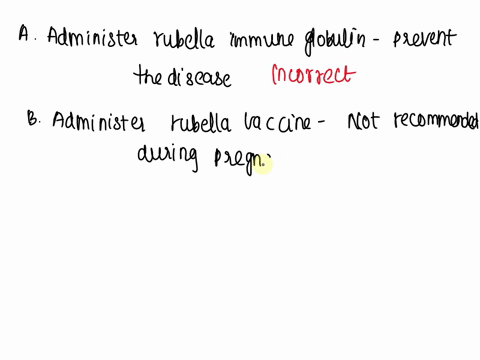 A. Administer rubella immune globulin - prevent
the disease Incorrect
B. Administer rubella vaccine - Not recommended
during pregn